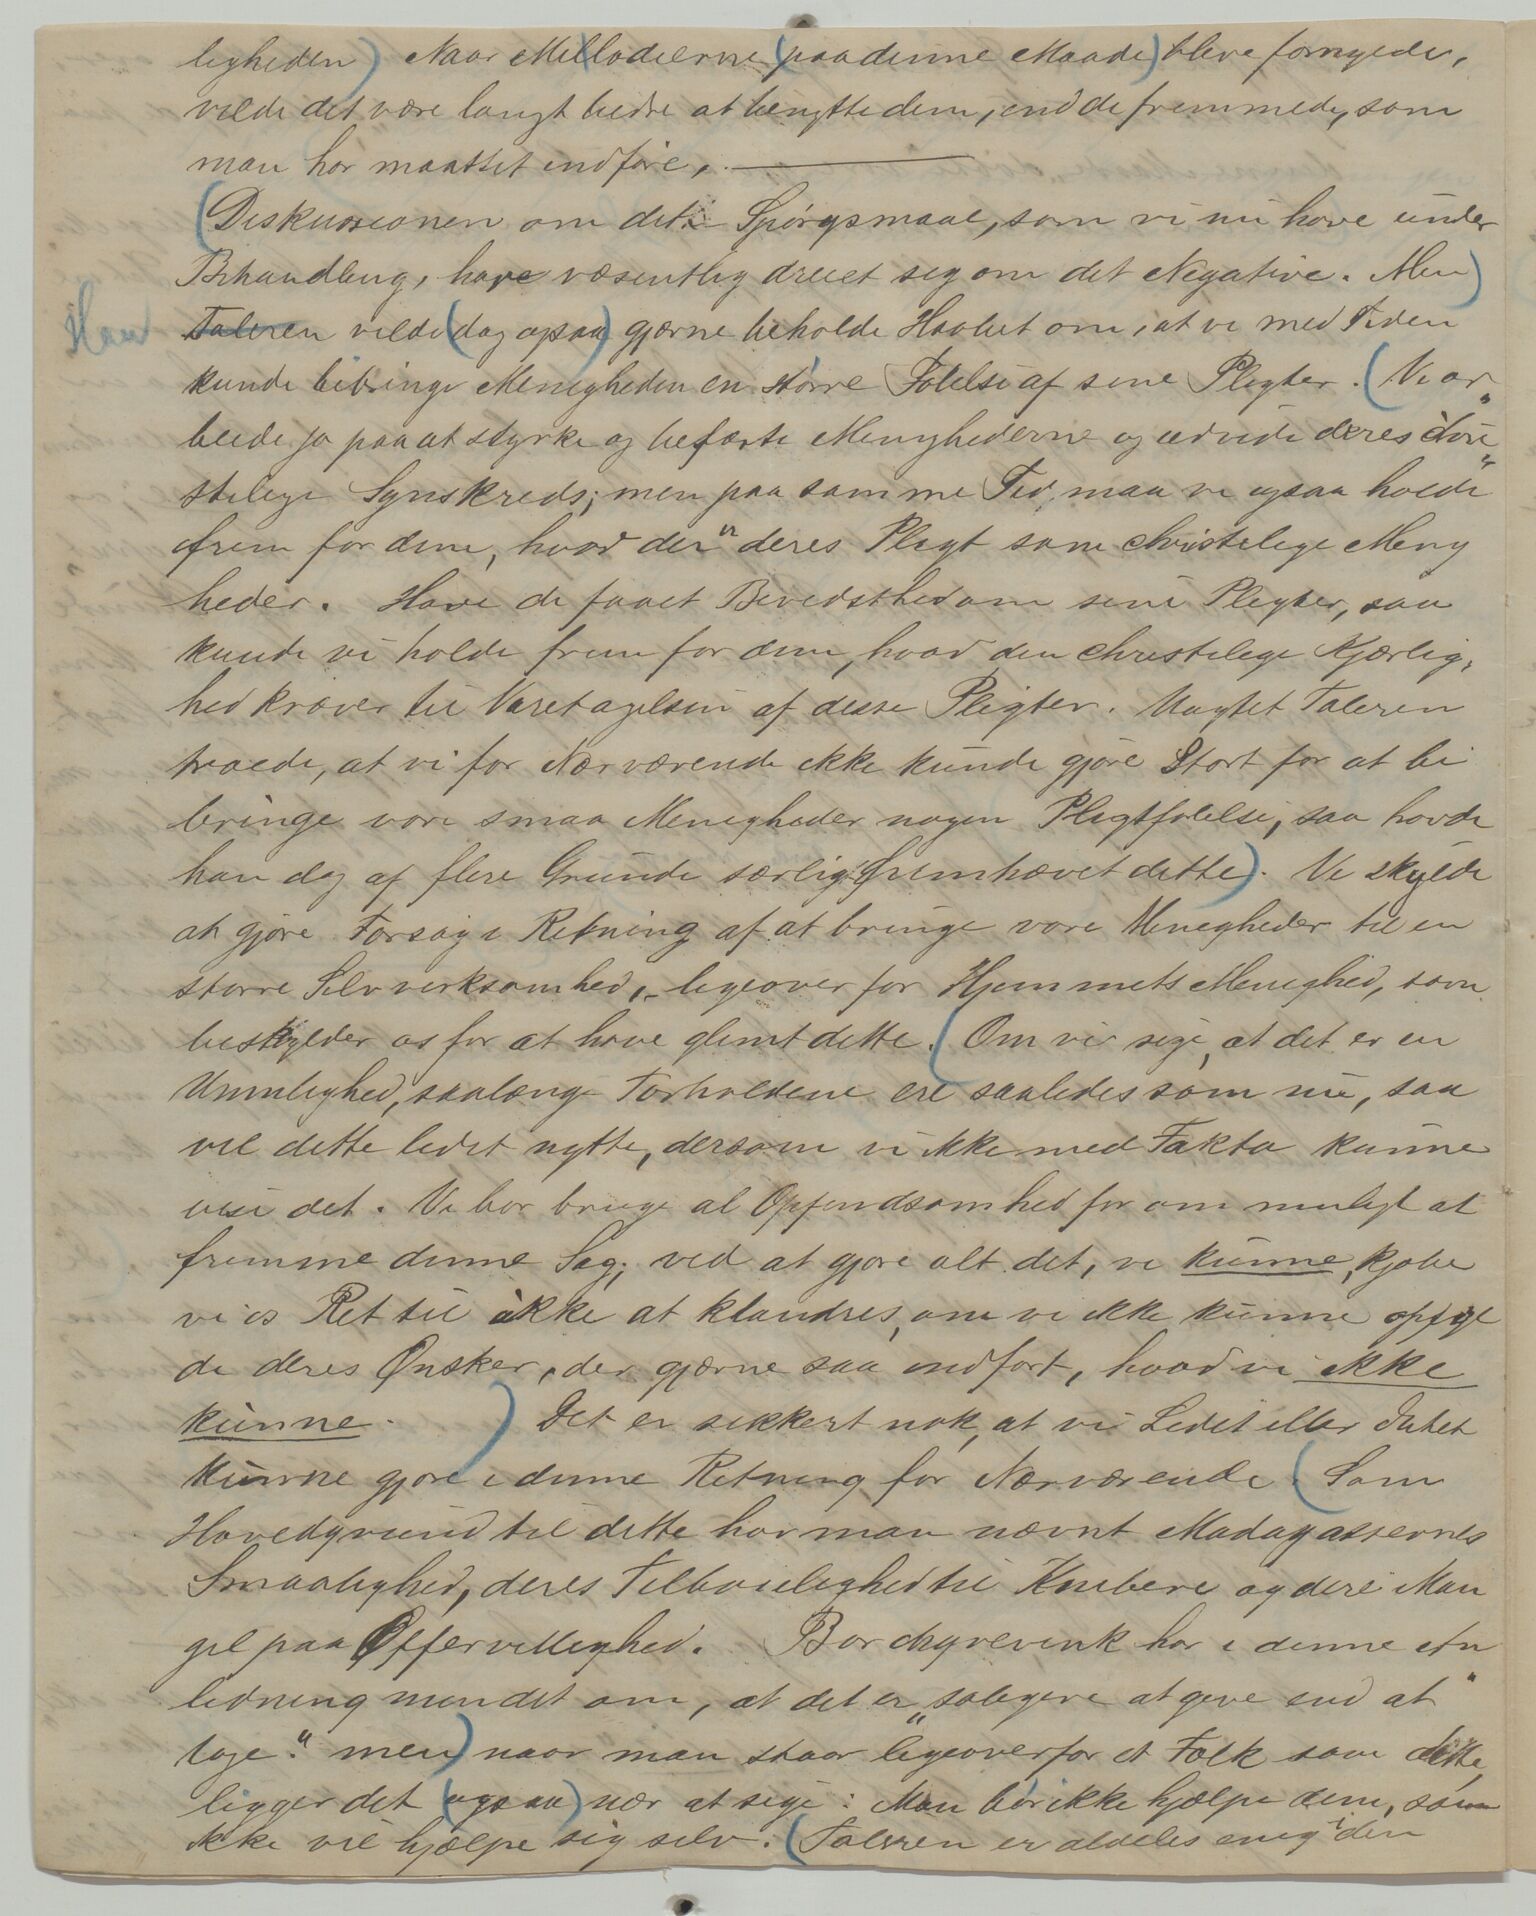 ligheden) Naar Mellodierne (paa denne Maade) bleve fornyede,
vilde det være langt bedre at benytte dem, end de fremmede, som
man har maattet indføre, —
(Diskussionen om det Spørgsmaal, som vi nu have under
Behandling, have væsentlig dreiet sig om det Negative. Men)
Han Taleren vilde (dog ogsaa) gjærne beholde Haabet om, at vi med Tiden
kunde bibringe Menigheden en større Følelse af sine Pligter. (Vi ar„
beide jo paa at styrke og befæste Menighederne og udvide deres chri„
stelige Synskreds; men paa samme Tid, maa vi ogsaa holde
frem for dem, hvad der er deres Pligt som christelige Menig
heder. Have de faaet Bevidsthed om sine Pligter, saa
kunde vi holde frem for dem, hvad den christelige Kjærlig,
hed kræver til Varetagelsen af disse Pligter. Uagtet Taleren
troede, at vi for Nærværende ikke kunde gjøre Stort for at bi
bringe vore smaa Menigheder nogen Pligtfølelse, saa havde
han dog af flere Grunde særlig fremhævet dette). Vi skylde
at gjøre Forsøg i Retning af at bringe vore Menigheder til en
større Selvvirksomhed, ligeover for Hjemmets Menighed, som
beskylder os for at have glemt dette. (Om vi sige, at det er en
Umulighed, saalænge Forholdene ere saaledes som nu, saa
vil dette lidet nytte, dersom vi ikke med Fakta kunne
vise det. Vi bør bruge al Opfindsomhed for om muligt at
fremme denne Sag; ved at gjøre alt det, vi kunne, kjøbe
vi os Ret til ikke at klandres, om vi ikke kunne opfyl
de deres Ønsker, der gjærne saa indført, hvad vi ikke
kunne. ) Det er sikkert nok, at vi Lidet eller Intet
kunne gjøre i denne Retning for Nærværende. (Som
Hovedgrund til dette har man nævnt Madagassernes
Smaalighed, deres Tilbøielighed til Kniberi og deres Man
gel paa Offervillighed. Borchgrevink har i denne An
ledning mindet om, at det er „saligere at give end at
tage." men) naar man staar ligeoverfor et Folk som dette,
ligger det (ogsaa) nær at sige: Man bør ikke hjælpe dem, som
ikke vil hjælpe sig selv. (Taleren er aldeles enig i den